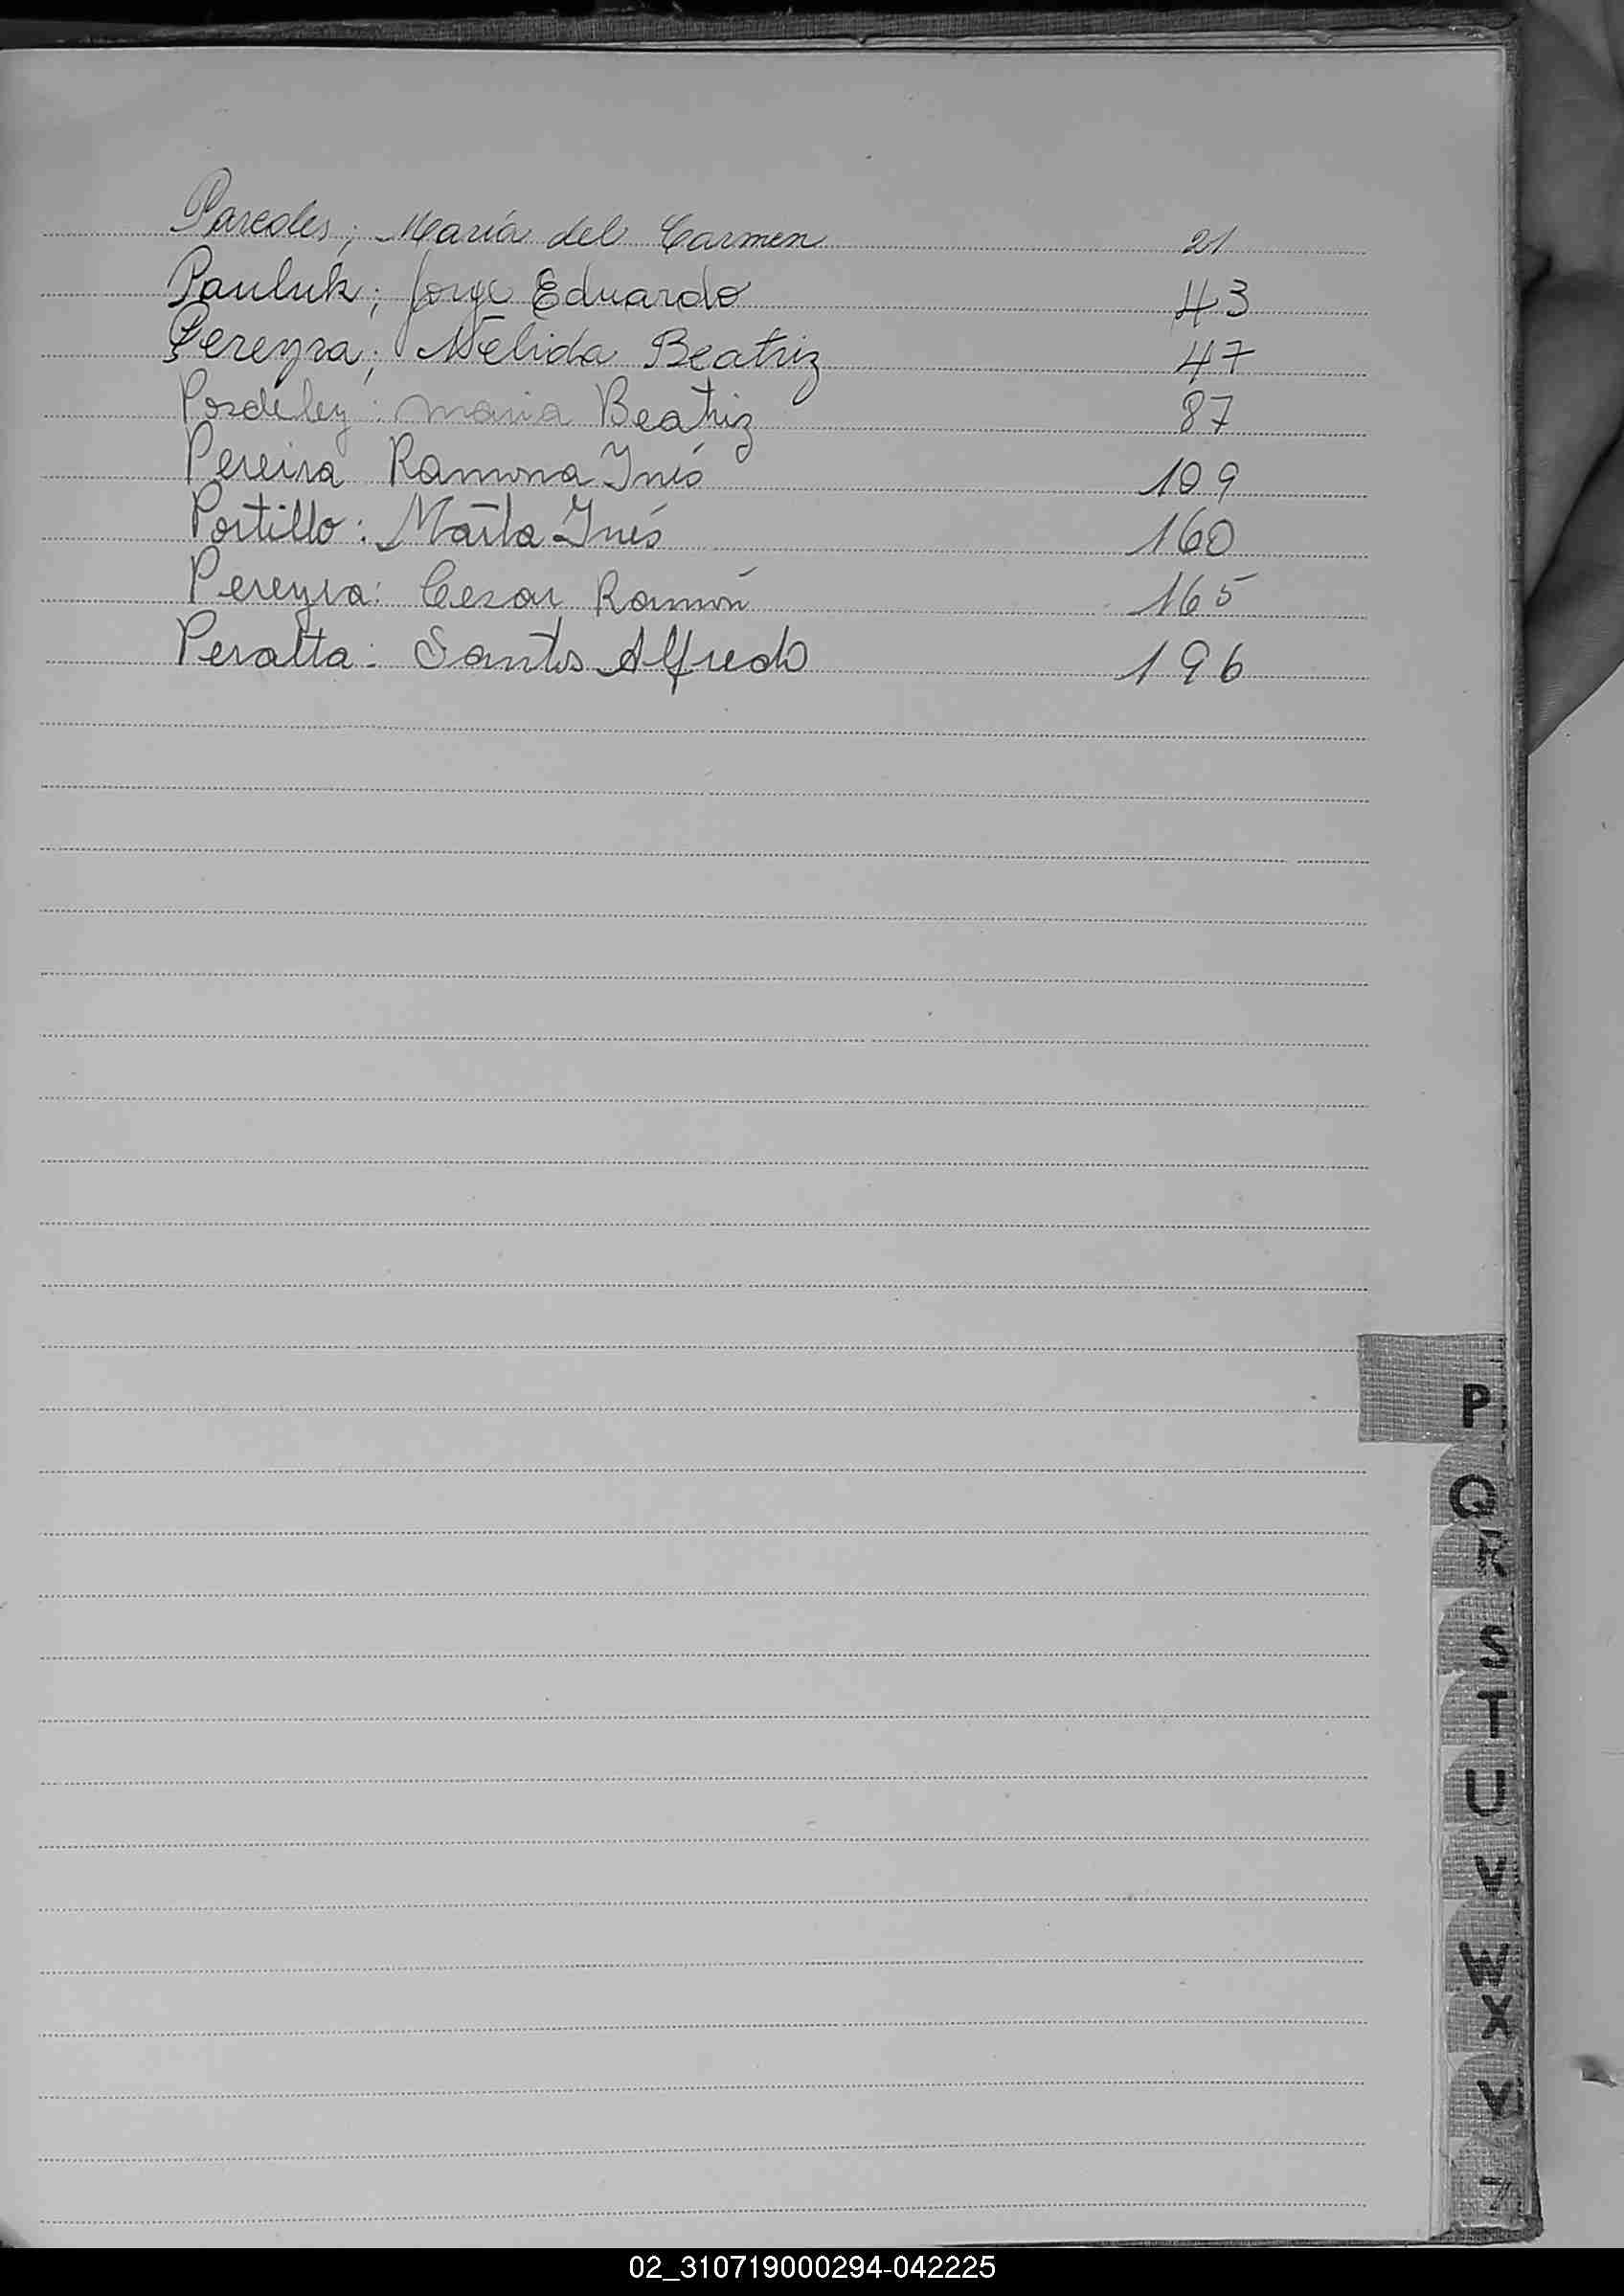 Paredes; María del Carmen 21
Pauluk; Jorge Eduardo 43
Pereyra; Nélida Beatriz 47
maria Beatriz 87
Pereira Ramona Inés 109
Portillo: Marta Inés 160
Pereyra: Cesar Ramón 165
Peralta: Santos Alfredo 196
P
Q
R
S
T
U
V
W
X
Y
Z
02_310719000294-042225